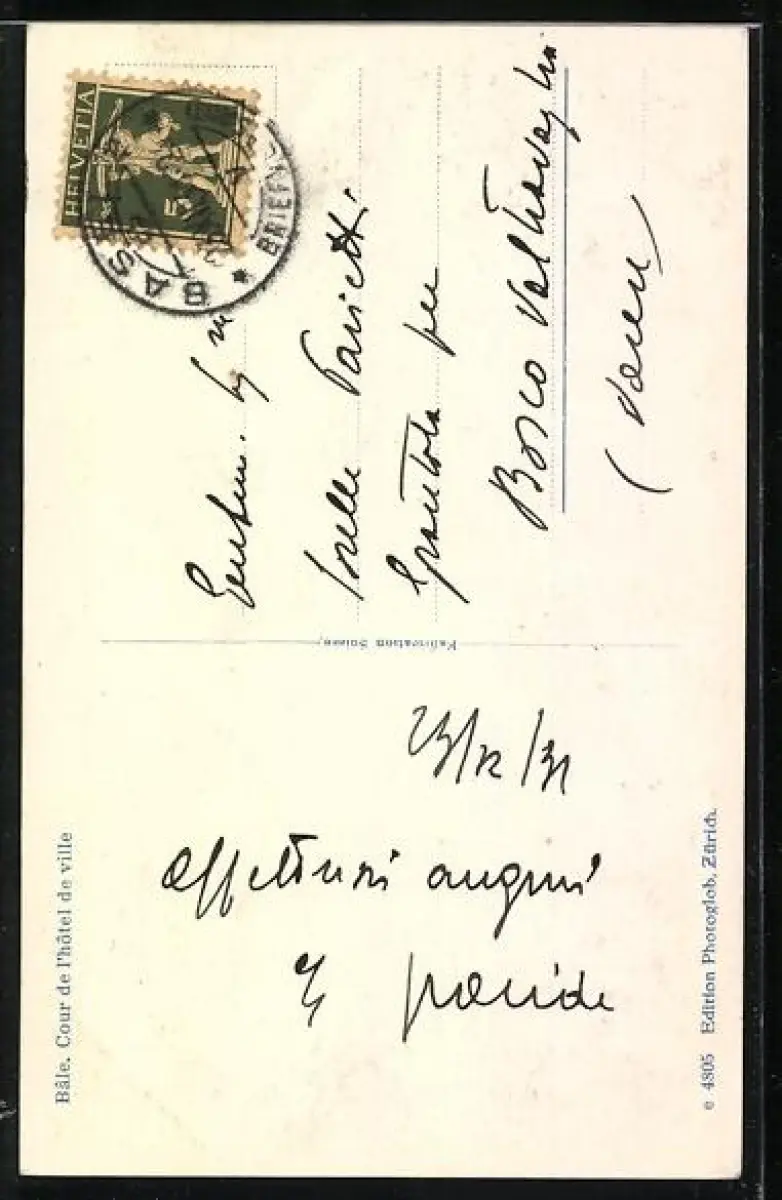 HELVETIA
5
BASEL
BRIEF
Sorelle Parietti
Grantola per
Bosco Valtravaglia
(Varese)
Fabrication Suisse.
23/12/31
affettuosi auguri
Bâle. Cour de l'hôtel de ville
e 4805 Edition Photoglob, Zürich.